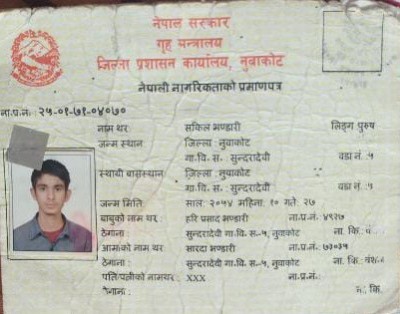 नेपाल सरकार
गृह मन्त्रालय
जिल्ला प्रशासन कार्यालय, नुवाकोट
नेपाली नागरिकताको प्रमाणपत्र
ना.प्र.नं.: २५-०१-७१-०४०७०
नाम थर : सकिल भण्डारी लिङ्ग पुरुष
जन्म स्थान : जिल्ला : नुवाकोट
गा.वि. स. : सुन्दरादेवी वडा नं. :५
स्थायी बासस्थान : जिल्ला : नुवाकोट
गा.वि. स. : सुन्दरादेवी वडा नं. :५
जन्म मिति: साल: २०५४ महिना: १० गते: २७
बाबुको नाम थर : हरि प्रसाद भण्डारी ना.प्र.नं.: ४९२७
ठेगाना : सुन्दरादेवी गा.वि. स.-५, नुवाकोट ना. कि.:
आमाको नाम थर : सारदा भण्डारी ना.प्र.नं.: ७३०३५
ठेगाना : सुन्दरादेवी गा.वि. स.-५, नुवाकोट ना. कि.: वंशज
पति/पत्नीको नामथर : XXX ना.प्र.नं.:
ठेगाना : ना. कि.